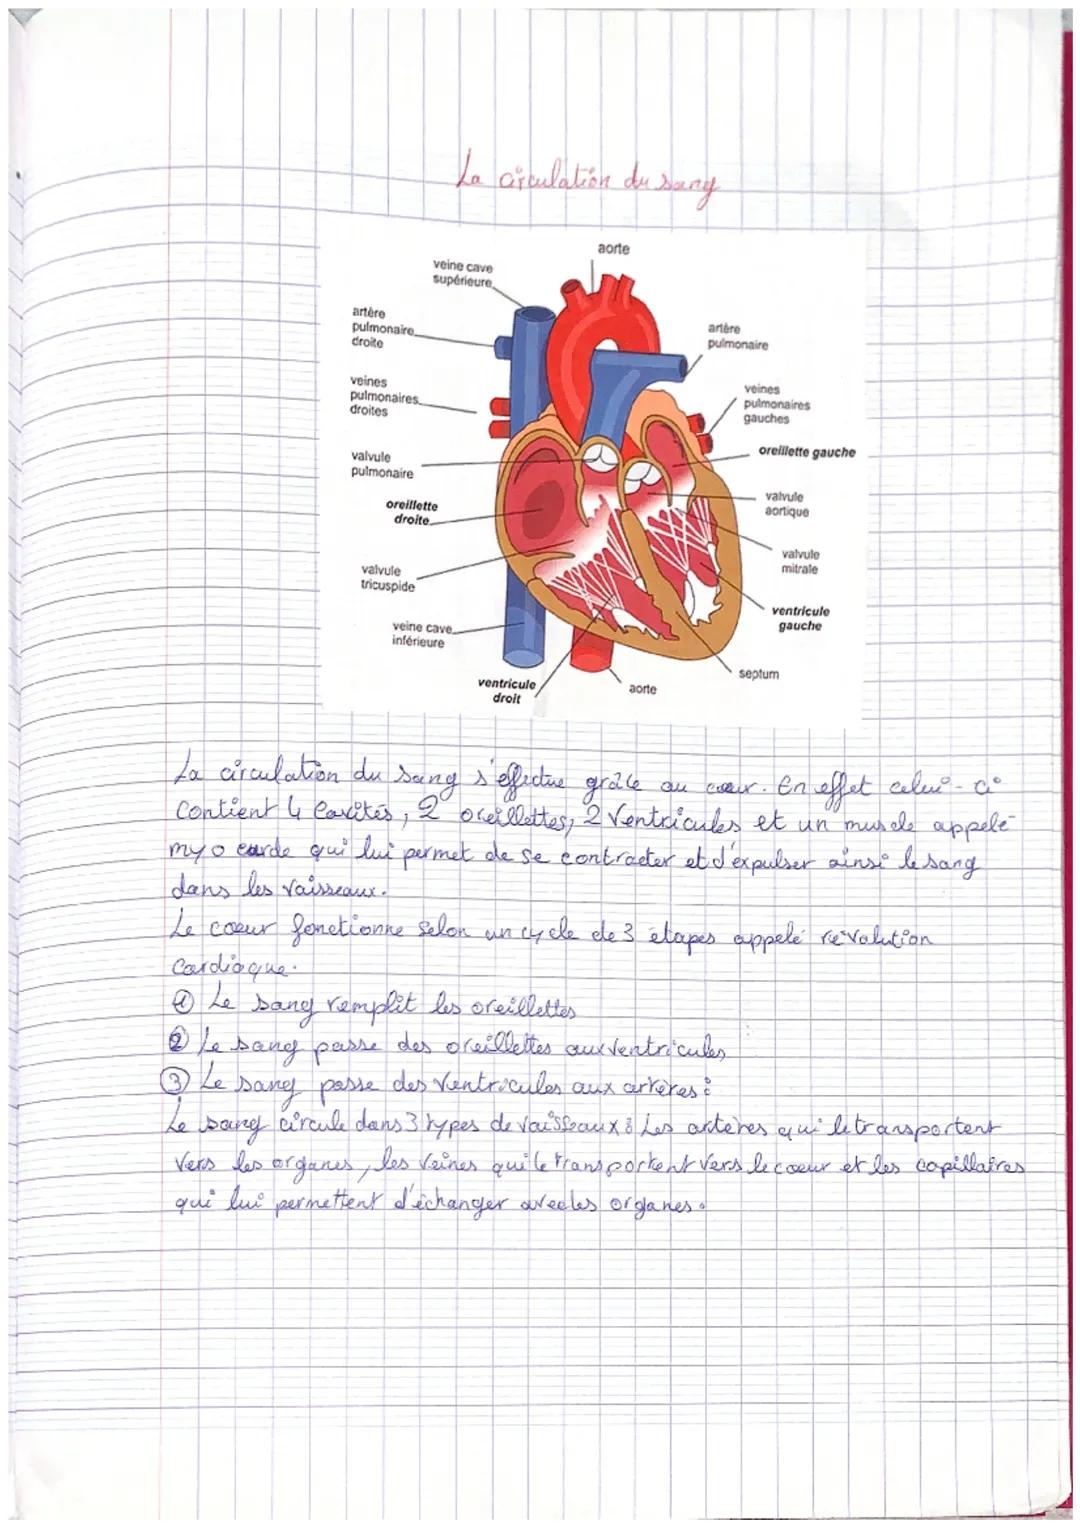 La circulation du sang
aorte
veine cave
supérieure
artère
pulmonaire
droite
artère
pulmonaire
veines
pulmonaires
droites
veines
pulmonaires
gauches
oreillette gauche
valvule
pulmonaire
valvule
aortique
oreillette
droite
valvule
mitrale
valvule
tricuspide
ventricule
gauche
veine cave
inférieure
septum
ventricule
droit
aorte
La circulation du sang s'effectue grâce au cœur. En effet celui-ci
contient 4 cavités, 2 oreillettes, 2 ventricules et un muscle appelé
myocarde qui lui permet de se contracter et d'expulser ainsi le sang
dans les vaisseaux.
Le cœur fonctionne selon un cycle de 3 étapes appelé révolution
cardiaque.
① Le sang remplit les oreillettes
② Le sang passe des oreillettes aux ventricules
③ Le sang passe des ventricules aux artères :
Le sang circule dans 3 types de vaisseaux : Les artères qui le transportent
vers les organes, les veines qui le transportent vers le cœur et les capillaires
qui lui permettent d'échanger avec les organes.